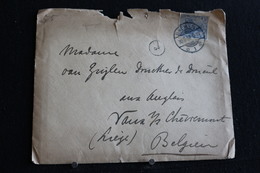 Madame
van Zuylen Drucker de
aux Anglais
Vaux s/s Chèvremont
(Liège) Belgien